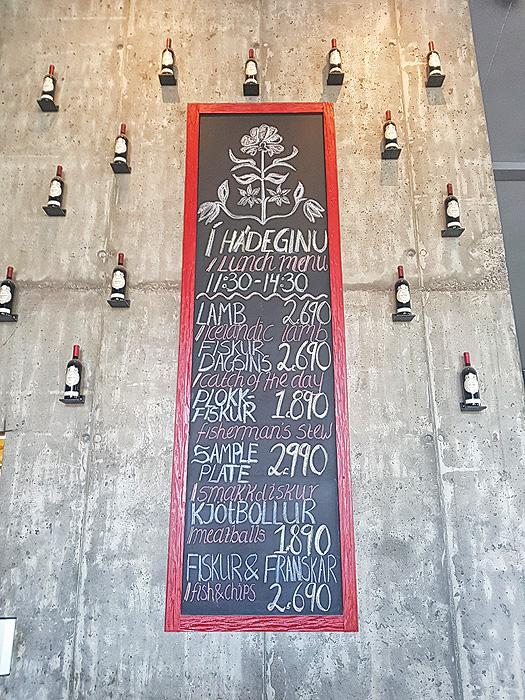 Í HÁDEGINU
/ Lunch menu
11:30-14:30
LAMB 2.690
/ Icelandic lamb
FISKUR
DAGSINS 2.690
/ catch of the day
PLOKK-
FISKUR 1.890
fisherman's stew
SAMPLE
PLATE 2990
/ smakkdiskur
KJOTBOLLUR
/ meatballs 1.890
FISKUR & FRANSKAR
/ fish & chips 2.690